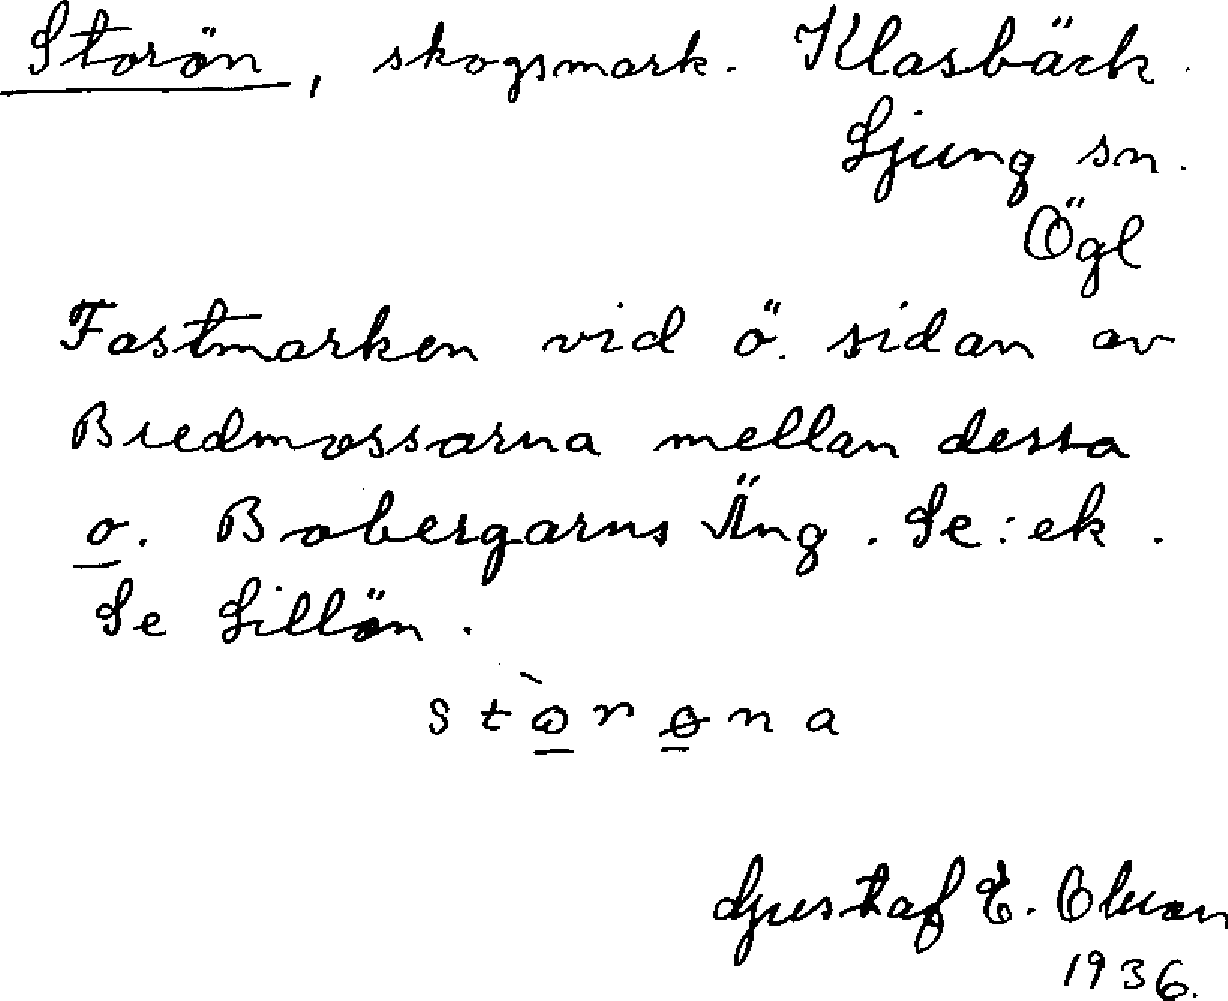 Storön, skogsmark. Klasbäck.
Ljung sn.
Ögl
Fastmarken vid ö. sidan av
Bredmossarna mellan dessa
o. Bobergarns Äng. Se: ek.
Se Lillön.
stòrøna
Gustaf E.
1936.